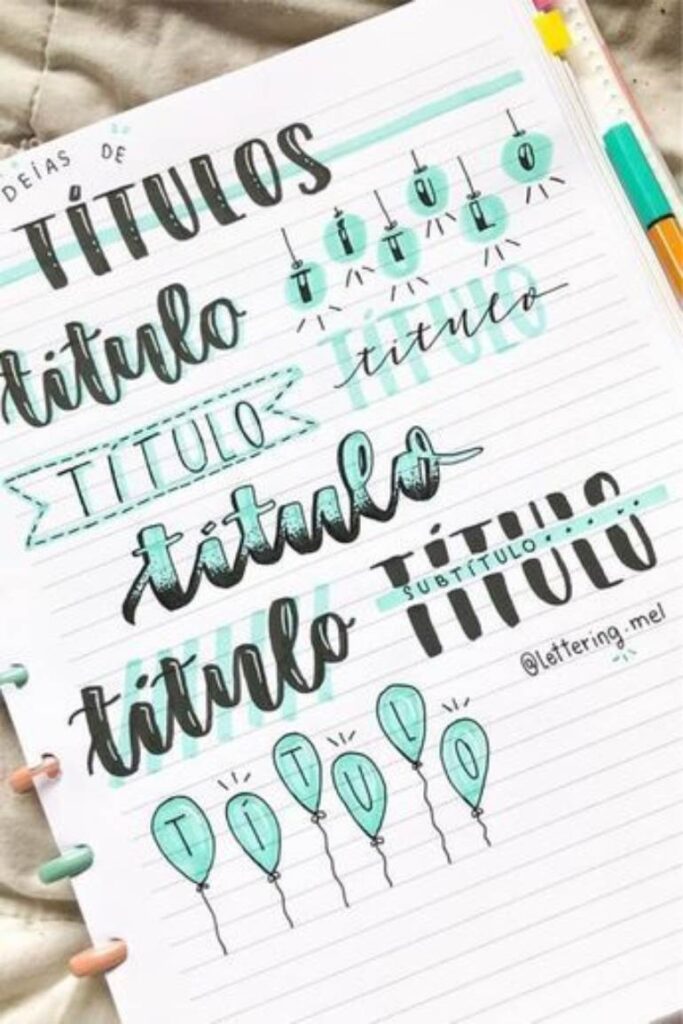 DEIAS DE
TÍTULOS
TÍTULO
título
TÍTULO
título
TÍTULO
título
TÍTULO
SUBTÍTULO
título
@lettering.mel
TÍTULO